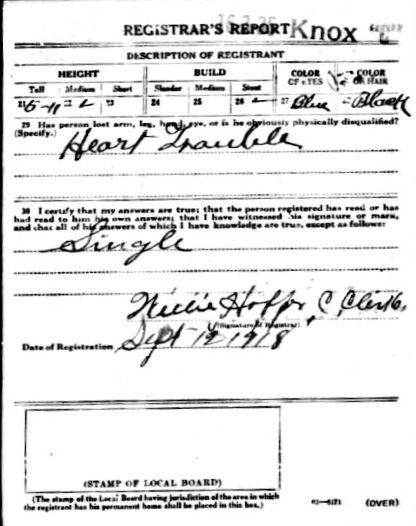 REGISTRAR'S REPORT Knox
DESCRIPTION OF REGISTRANT
HEIGHT BUILD COLOR OF EYES COLOR OF HAIR
Tall Medium Short Slender Medium Stout
21 5-11 22 23 24 25 26 27 Blue Black
29 Has person lost arm, leg, hand, eye, or is he obviously physically disqualified?
(Specify.) Heart Trouble
30 I certify that my answers are true; that the person registered has read or has
had read to him his own answers; that I have witnessed his signature or mark,
and that all of his answers of which I have knowledge are true, except as follows:
Single
Willie C. Clerk
(Signature of Registrar)
Date of Registration Sept 12 1918
(STAMP OF LOCAL BOARD)
(The stamp of the Local Board having jurisdiction of the area in which
the registrant has his permanent home shall be placed in this box.)
03—6171 (OVER)